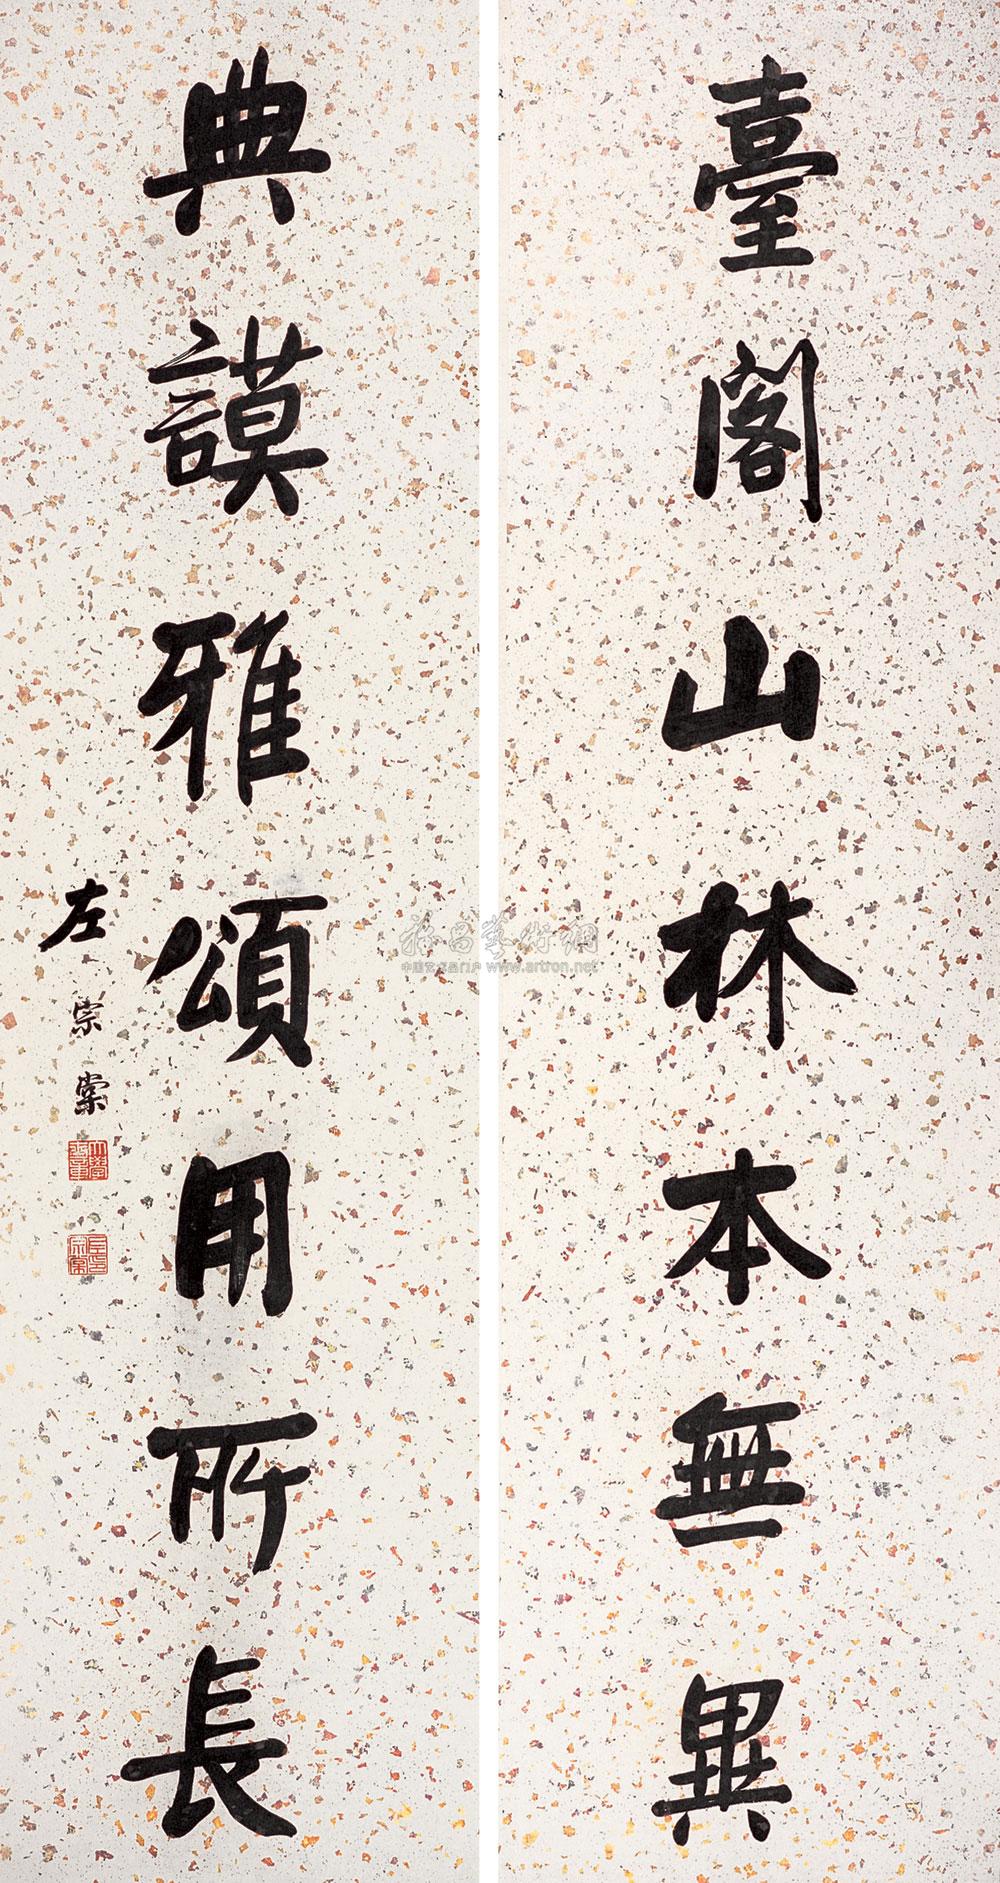 臺閣山林本無異
典謨雅頌用所長
左宗棠
雅昌藝術網
中国艺术品门户 www.artron.net